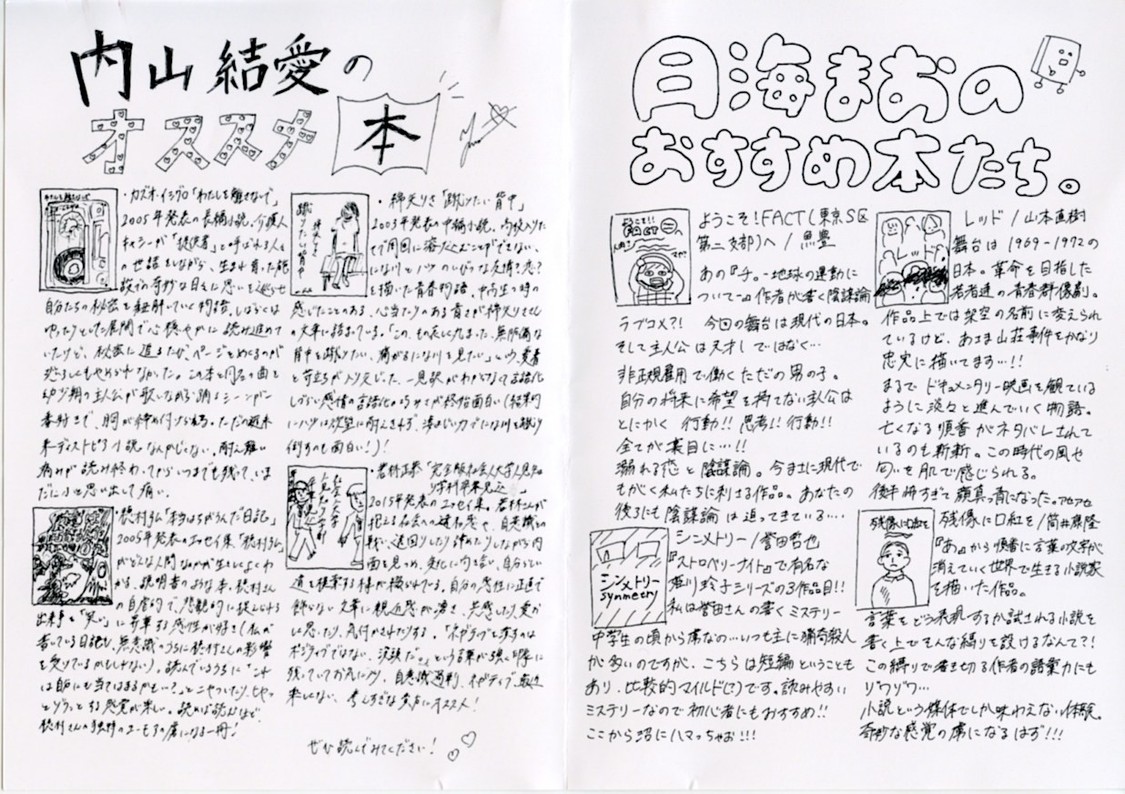 内山結愛の
オススメ
本
・カズオ・イシグロ「わたしを離さないで」
2005年発表の長編小説。介護人
キャシーが"提供者"と呼ばれる人々
の世話をしながら、生まれ育った施
設での奇妙な日々に思いを巡らせ
自分たちの秘密を紐解いていく物語。しばらくは
ゆったりとした展開で心穏やかに読み進めて
いたけど、秘密に迫るたび、ページをめくるのが
恐ろしくもやめられなかった。この本と同名の曲を
幼少期の主人公が歌いながら踊るシーンが
一番刺さって、胸が締め付けられる。ただの近未
来ディストピア小説なんかじゃない。耐え難い
痛みが読み終わってからいつまでも残って、いま
だにふと思い出して痛い。
・穂村弘「本当はちがうんだ日記」
2005年発表のエッセイ集。「穂村弘」
がどんな人間なのかが生々しくよくわ
かる、説明書のような本。穂村さん
の自虐的で、悲観的に捉えがちな
出来事を"笑い"に昇華する感性が好き(私が
書いている日記も、無意識のうちに穂村さんの影響
を受けているかもしれない)。読んでいるうちに「これ
は自分にも当てはまるかも…?」とニヤついたり、ヒヤッ
とする感覚が楽しい。読めば読むほど、
穂村さんの独特のユーモアの虜になる一冊!
・綿矢りさ「蹴りたい背中」
2003年発表の中編小説。高校入りた
てで周囲に溶け込むことができない、
にな川とハツのいびつな友情?恋?
を描いた青春物語。中高生の時の
感じたことのある、心当たりのある青さが綿矢りささん
の文章に詰まっている。「この、もの哀しく丸まった、無防備な
背中を蹴りたい。痛がるにな川を見たい。」という、愛着
と苛立ちが入り交じった、一見訳がわからなくて言語化
しづらい感情の言語化の巧みさが終始面白い(結果的
にハツは欲望に耐えきれず、凄まじい力でにな川を蹴り
倒すのも面白い!)!
・若林正恭「完全版 社会人大学人見知り
学部 卒業見込」
2015年発表のエッセイ集。若林さんが
抱える社会への違和感や、自意識との
戦い、遠回りしたり諦めたりしながら内
面を見つめ、変化に向き合い、自分らしい
道を模索する様が描かれている。自分の感性に正直で
飾らない文章に親近感が湧き、共感したり、愛お
しく思ったり、気付かされたりする。「ネガティブを潰すのは
ポジティブではない。没頭だ。」という言葉が強く印象に
残っていてお気に入り。自意識過剰、ネガティブ、最近
楽しくない、考えすぎな貴方にオススメ!
ぜひ読んでみてください!
月海まおの
おすすめ本たち。
ようこそ!FACT(東京S区
第二支部)へ / 魚豊
あの『チ。-地球の運動に
ついて-』作者が書く陰謀論
ラブコメ?! 今回の舞台は現代の日本。
そして主人公は天才! ではなく…
非正規雇用で働くただの男の子。
自分の将来に希望を持てない主人公は
とにかく 行動!! 思考!! 行動!!
全てが裏目に…!!
溺れる恋と陰謀論。今まさに現代で
もがく私たちに刺さる作品。あなたの
後ろにも陰謀論は迫ってきている…
シンメトリー
symmetry
シンメトリー / 誉田哲也
『ストロベリーナイト』で有名な
姫川玲子シリーズの3作品目!!
私は誉田さんの書くミステリー
中学生の頃から虜なの…いつも主に猟奇殺人
が多いのですが、こちらは短編ということも
あり、比較的マイルド(?)です。読みやすい
ミステリーなので初心者にもおすすめ!!
ここから沼にハマっちゃお!!!
レッド / 山本直樹
舞台は1969-1972の
日本。革命を目指した
若者達の青春群像劇。
作品上では架空の名前に変えられ
ているけど、あさま山荘事件をかなり
忠実に描いてます…!!
まるでドキュメンタリー映画を観ている
ように淡々と進んでいく物語。
亡くなる順番がネタバレされて
いるのも斬新。この時代の風や
匂いを肌で感じられる。
後半怖すぎて顔真っ青になった。アセアセ
残像に口紅を
残像に口紅を / 筒井康隆
『あ』から順番に言葉の文字が
消えていく世界で生きる小説家
を描いた作品。
言葉をどう表現するか試される小説を
書く上でそんな縛りを設けるなんて?!
この縛りで書き切る作者の語彙力にも
ゾワゾワ…
小説という媒体でしか味わえない体験。
奇妙な感覚の虜になるはず!!!